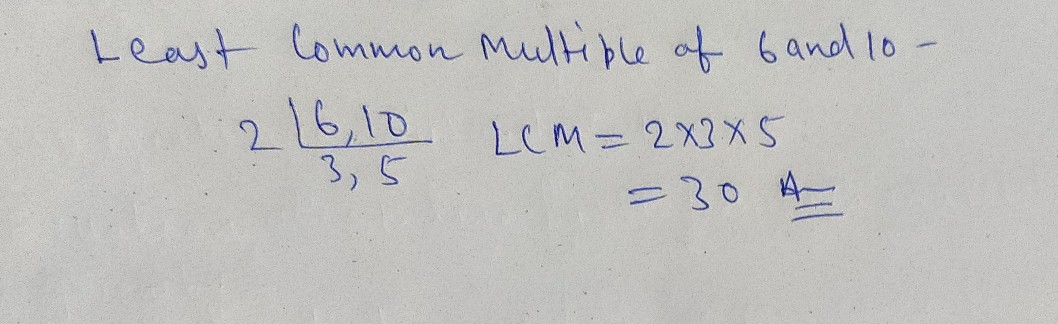 Least Common Multiple of 6 and 10 -
2 | 6, 10 LCM = 2×3×5
3, 5
= 30 A